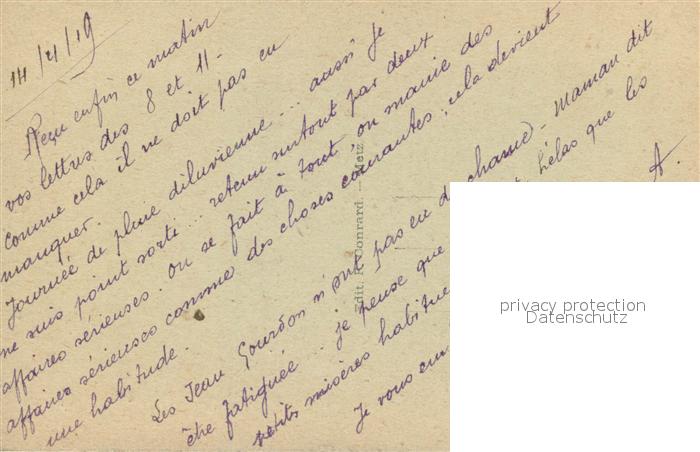 14/4/19
Reçu enfin ce matin
vos lettres des 8 et 11.
comme cela il ne doit pas en
manquer.
Journée de pluie diluvienne... aussi je
ne suis point sortie... retenue surtout par deux
affaires sérieuses. On se fait à tout, on manie des
affaires sérieuses comme des choses courantes, cela devient
une habitude.
Les Jean Gourdon n'ont pas eu de chance - Maman dit
être fatiguée... je pense que hélas que les
petits misères
Je vous
A.
Edit. P. Conrard. — Metz
privacy protection
Datenschutz